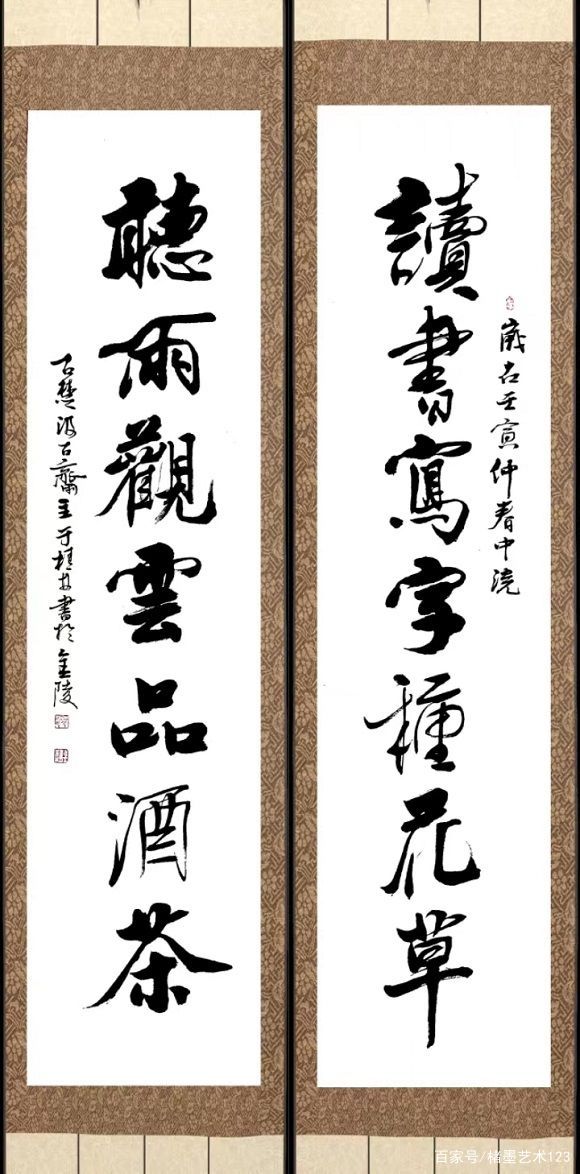 讀書寫字種花草
歲在壬寅仲春中浣
聽雨觀雲品酒茶
古楚汲古齋主于楼書於金陵
百家号/楮墨艺术123